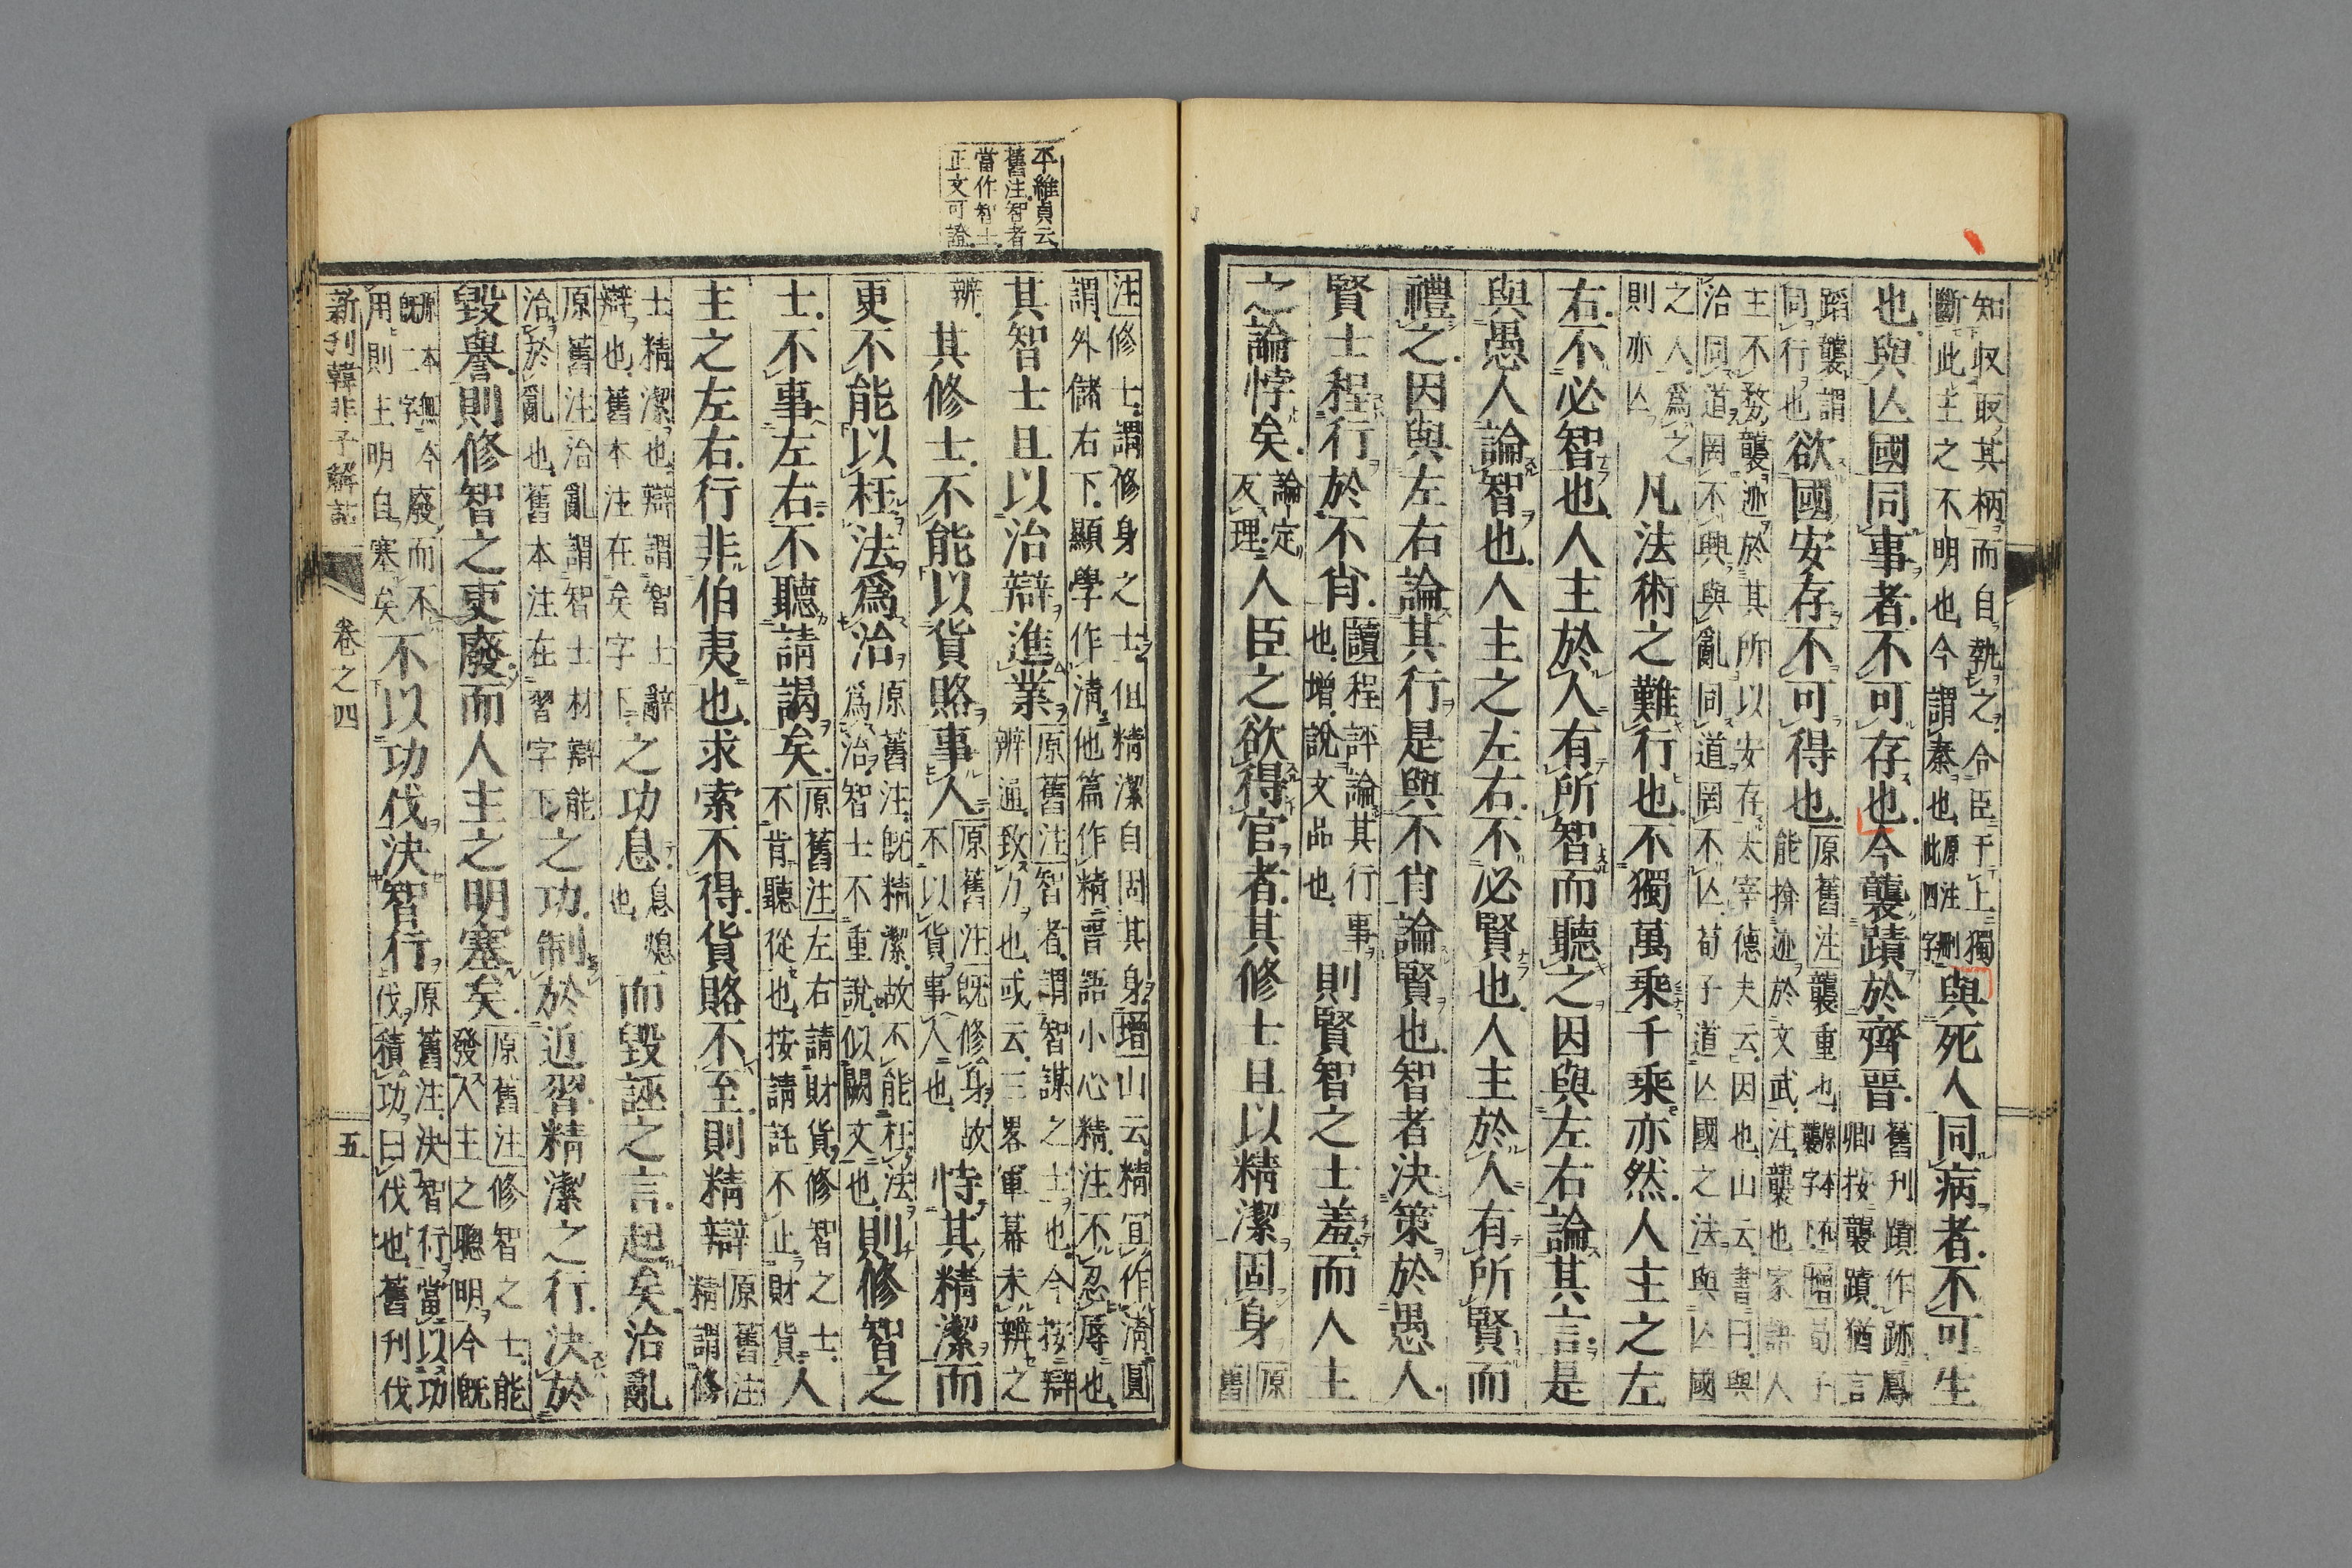 知収取其柄而自執之今臣于上獨
斷此主之不明也今謂秦也此四字原注刪
與死人同病者不可生
也與亾國同事者不可存也今襲蹟於齊晋
舊刊蹟作跡鳳
卿按襲蹟猶言
蹈襲謂
同行也
欲國安存不可得也
原舊注襲重也原本襲字
能揜迹於文武注襲也家語人
主不務襲迹於其所以安存太宰德夫云因也山云書曰與
治同道罔不興與亂同道罔不亾荀子道亾國之法與亾國
之人爲之
則亦亾
凡法術之難行也不獨萬乘千乘亦然人主之左
右不必智也人主於人有所智而聽之因與左右論其言是
與愚人論智也人主之左右不必賢也人主於人有所賢而
禮之因與左右論其行是與不肖論賢也智者決策於愚人
賢士程行於不肖
讀程評論其行事
也增說文品也
則賢智之士羞而人主
之論悖矣
論定
反理
人臣之欲得官者其修士且以精潔固身
原
舊
平維貞云
舊注智者
當作智士
正文可證
注修士謂修身之士但精潔自固其身增山云精宜作清圓
謂外儲右下顯學作清他篇作精晋語小心精注不忍辱也
其智士且以治辯進業
原舊注智者謂智謀之士也今按辯
辨通致力也或云三畧軍幕未辨之
辨
其修士不能以貨賂事人
原舊注旣修身故
不以貨事人也
恃其精潔而
更不能以枉法爲治
原舊注旣精潔故不能枉法
爲治智士不重說似闕文也
則修智之
士不事左右不聽請謁矣
原舊注左右請財貨修智之士
不肯聽從也按請託不止財貨
人
主之左右行非伯夷也求索不得貨賂不至則精辯
原舊注
精謂修
士精潔也辯謂智士辭
辯也舊本注在矣字下
之功息
息熄
也
而毀誣之言起矣治亂
原舊注治亂謂智士材辯能
治於亂也舊本注在習字下
之功制於近習精潔之行決於
毀譽則修智之吏廢而人主之明塞矣
原舊注修智之士能
發人主之聰明今旣
原本無
旣二字
今廢而不
用則主明自塞矣
不以功伐決智行
原舊注決智行當以功
伐積功曰伐也舊刊伐
新刊韓非子解詁
卷之四
五